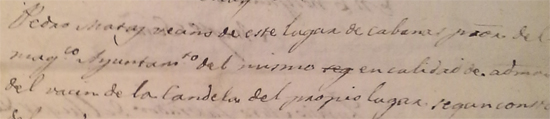 Pedro Moraz vecino de este lugar de cabanas pron. del
mag.co Ayuntam.to del mismo en calidad de admor
del vacin de la Candela del propio lugar segun consta